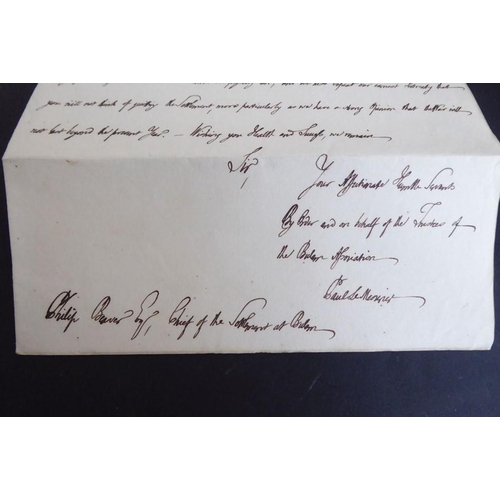 you will not think of quitting the Settlement, more particularly as we have a strong Opinion that  will
not last beyond the present Year. — Wishing you Health and Success, we remain
Sir,
Your Affectionate Humble Servants
By Order and on behalf of the Trustees of
the Bulam Association
Paul Le Mesurier
Philip Beaver Esq, Chief of the Settlement at Bulam